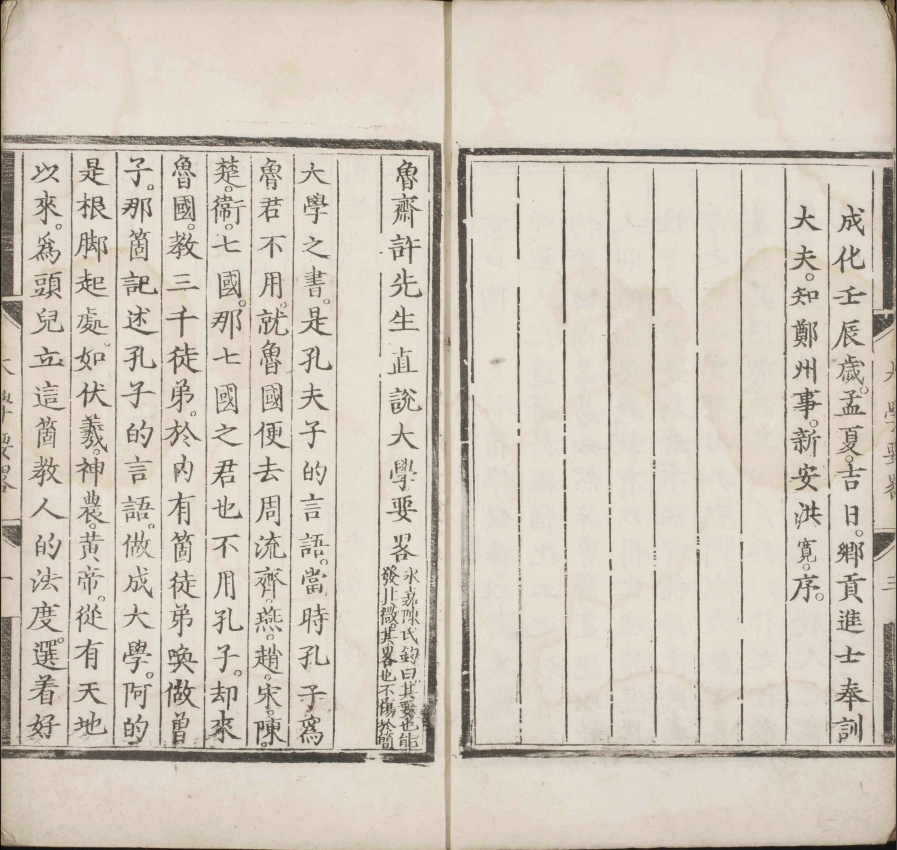 成化壬辰歲。孟夏。吉日。鄉貢進士奉訓
大夫。知鄭州事。新安洪寬。序。
魯齋許先生直說大學要畧
永嘉陳氏鈞曰其要也能
發其微。其畧也不傷於簡
大學之書。是孔夫子的言語。當時孔子爲
魯君不用。就魯國便去周流齊。燕。趙。宋。陳。
楚。衛。七國。那七國之君也不用孔子。却來
魯國。教三千徒弟。於內有箇徒弟喚做曾
子。那箇記述孔子的言語。做成大學。阿的
是根脚起處。如伏羲。神農。黃帝。從有天地
以來。爲頭兒立這箇教人的法度。選着好